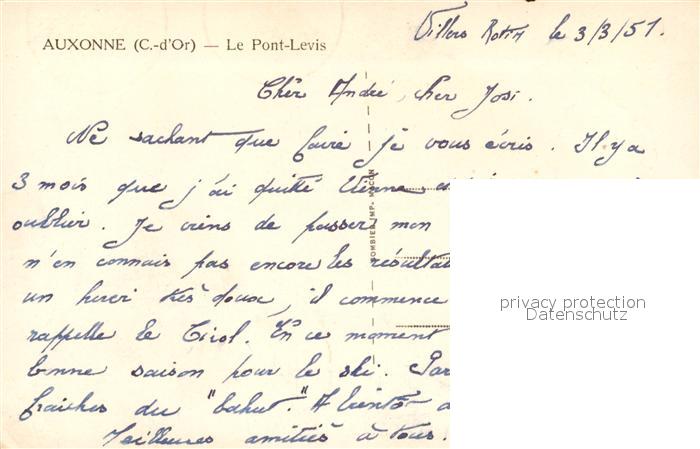 Villers Rotin le 3/3/51.
AUXONNE (C.-d'Or) — Le Pont-Levis
Chèr André, cher Josi.
Ne sachant que faire je vous écris. Il y a
3 mois que j'ai quitté Vienne
oublier. Je viens de passer mon
n'en connais pas encore les résultat
un hiver très doux, il commence
rappelle le Tirol. En ce moment
bonne saison pour le ski. Par
fraiches du "bahut." A bientôt
Meilleures amitiés à tous.
COMBIER IMP. MACON
privacy protection
Datenschutz